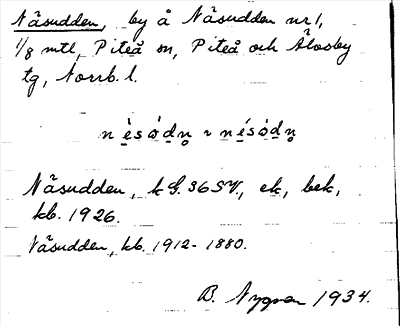 Näsudden, by å Näsudden nr 1,
1/8 mtl, Piteå sn, Piteå och Älvsby
tg, Norrb. l.
n è s ó d n ~ n é s ó d n
Näsudden, k G. 36 SV., ek, bek,
kb. 1926.
Näsudden, kb. 1912-1880.
B. Nygren 1934.